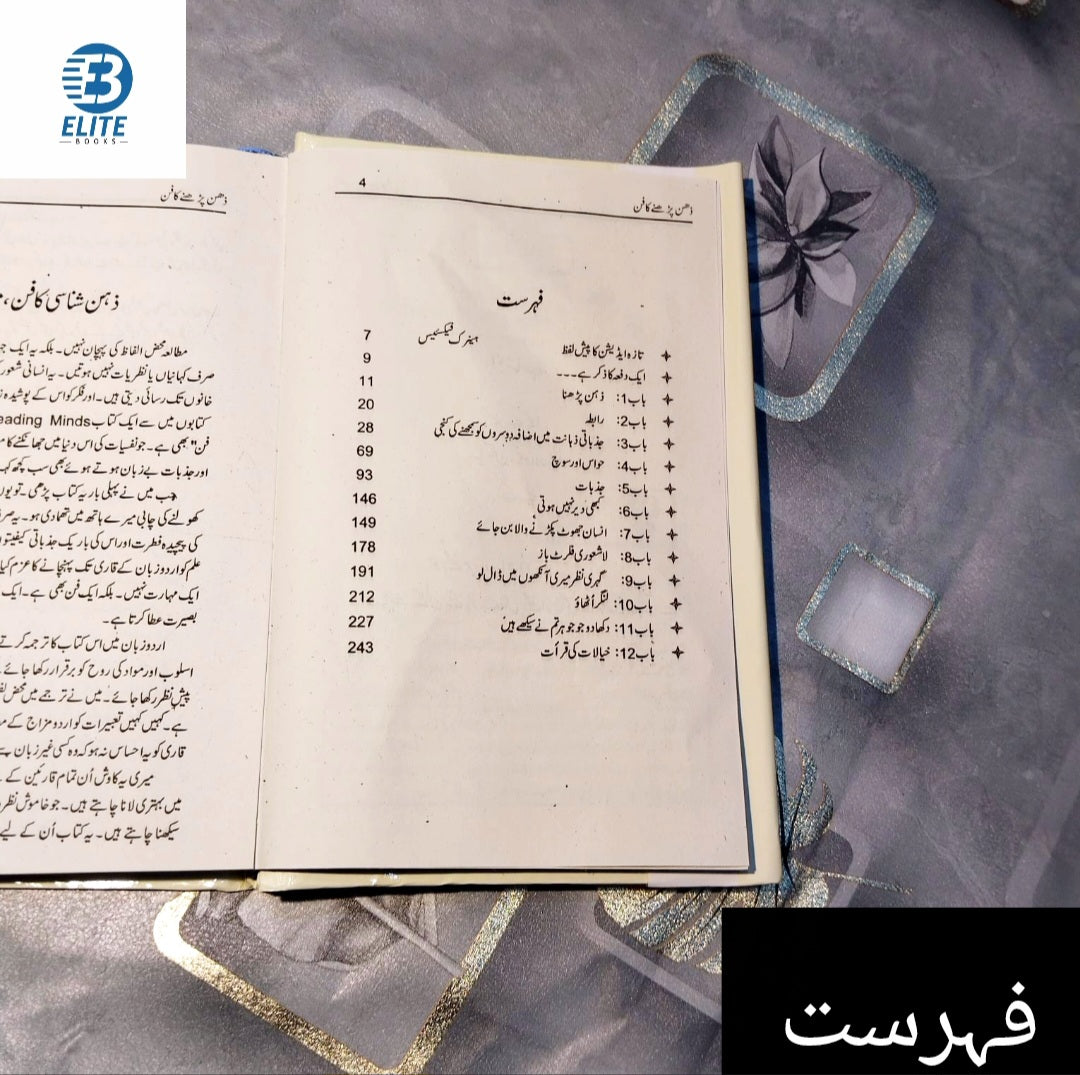 ELITE
BOOKS
4
ذهن پڑھنے کا فن
فہرست
تازہ ایڈیشن کا پیش لفظ ہینرک فیکسیئس 7
ایک دفعہ کا ذکر ہے۔۔۔ 9
باب1: ذہن پڑھنا 11
باب2: رابطہ 20
باب3: جذباتی ذہانت میں اضافہ دوسروں کو سمجھنے کی کنجی 28
باب4: حواس اور سوچ 69
باب5: جذبات 93
باب6: کبھی دیر نہیں ہوتی 146
باب7: انسان جھوٹ پکڑنے والا بن جائے 149
باب8: لاشعوری فلرٹ باز 178
باب9: گہری نظر میری آنکھوں میں ڈال لو 191
باب10: لنگر اُٹھاؤ 212
باب11: دکھا دو جو جوہر تم نے سیکھے ہیں 227
باب12: خیالات کی قرأت 243
ذهن پڑھنے کا فن
ذہن شناسی کا فن،
مطالعہ محض الفاظ کی پہچان نہیں۔ بلکہ یہ ایک
صرف کہانیاں یا نظریات نہیں ہوتیں۔ یہ انسانی شعور
خانوں تک رسائی دیتی ہیں۔ اور فکر کو اس کے پوشیدہ
کتابوں میں سے ایک کتاب eading Minds
فن" بھی ہے۔ جو نفسیات کی اس دنیا میں جھانکنے کا
اور جذبات بے زبان ہوتے ہوئے بھی سب کچھ کہہ
جب میں نے پہلی بار یہ کتاب پڑھی۔ تو یوں
کھولنے کی چابی میرے ہاتھ میں تھما دی ہو۔ یہ صرف
کی پیچیدہ فطرت اور اس کی باریک جذباتی کیفیتوں
علم کو اردو زبان کے قاری تک پہنچانے کا عزم کیا
ایک مہارت نہیں۔ بلکہ ایک فن بھی ہے۔ ایک
بصیرت عطا کرتا ہے۔
اردو زبان میں اس کتاب کا ترجمہ کرتے
اسلوب اور مواد کی روح کو برقرار رکھا جائے
پیش نظر رکھا جائے۔ میں نے ترجمے میں محض
ہے۔ کہیں کہیں تعبیرات کو اردو مزاج کے
قاری کو یہ احساس نہ ہو کہ وہ کسی غیر زبان سے
میری یہ کاوش اُن تمام قارئین کے
میں بہتری لانا چاہتے ہیں۔ جو خاموش نظروں
سیکھنا چاہتے ہیں۔ یہ کتاب اُن کے لیے
فہرست